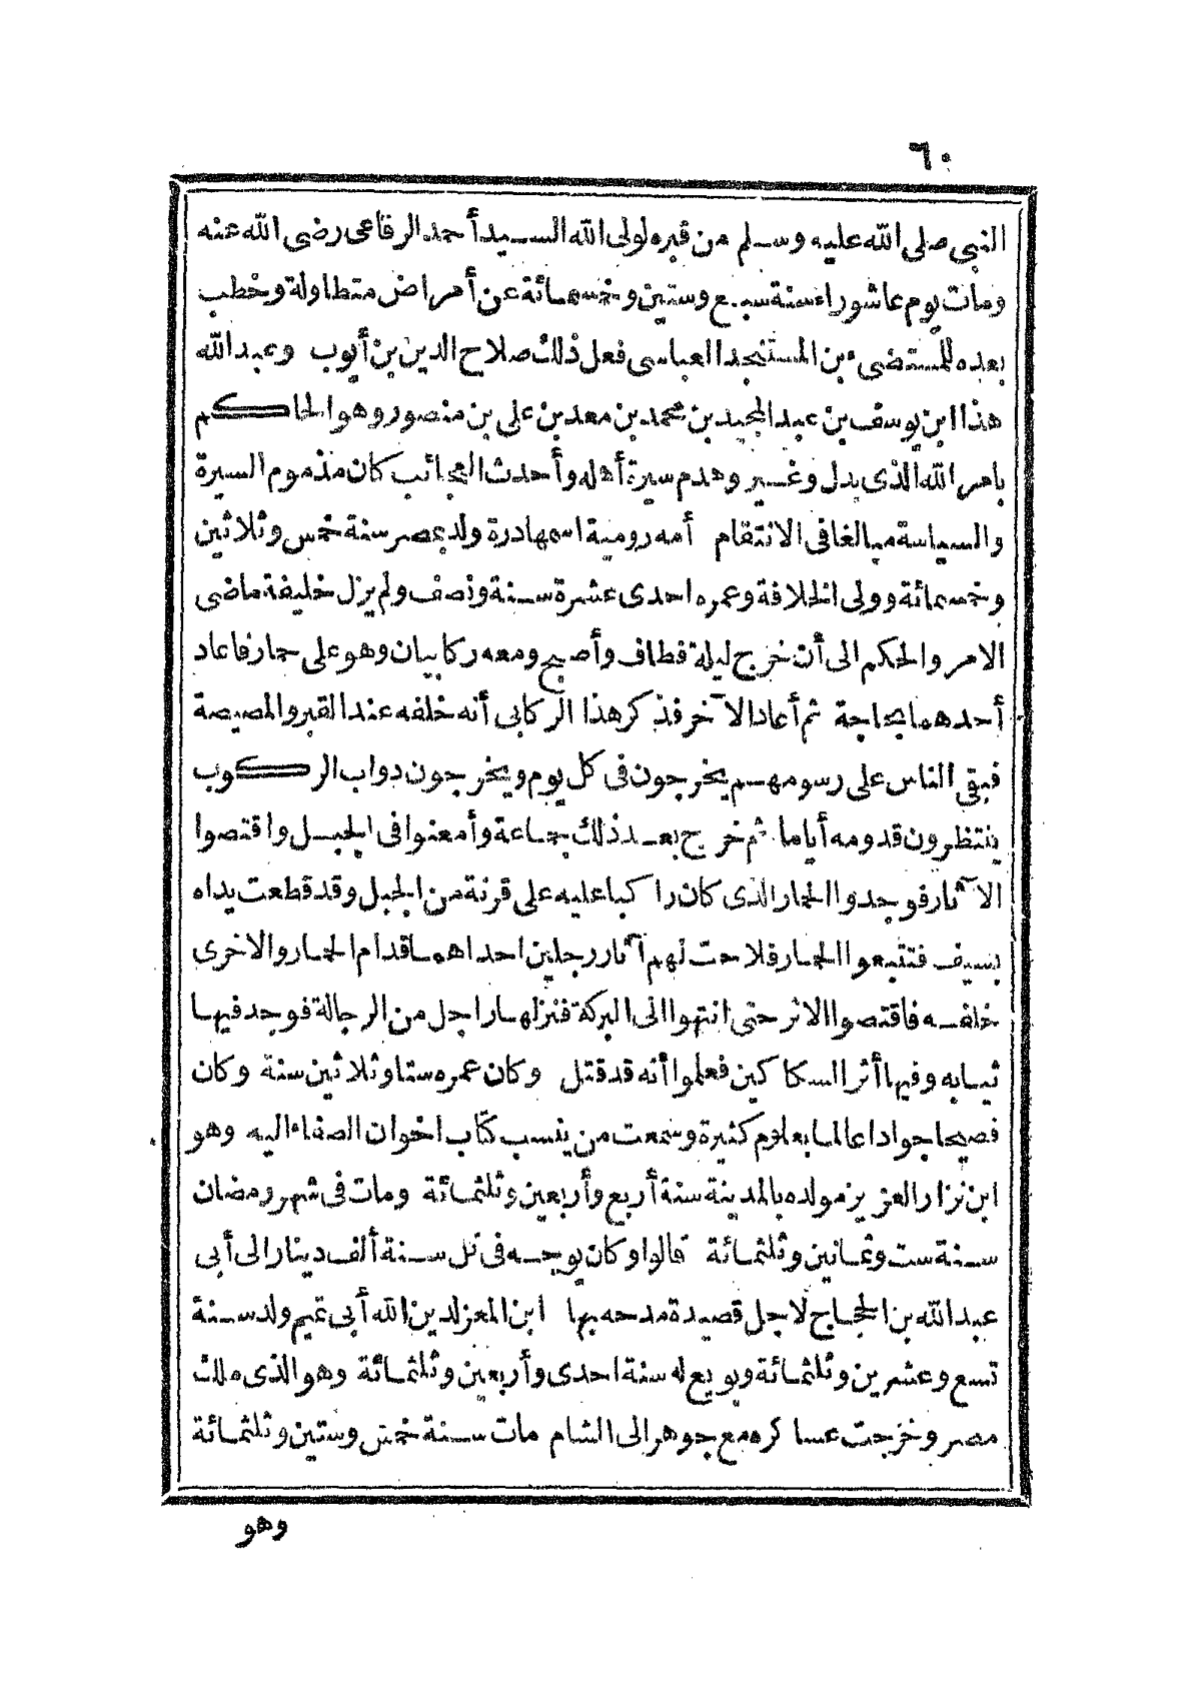 ٦٠
النبي صلى الله عليه وسلم من قبره لولى الله السيد أحمد الرفاعى رضى الله عنه
ومات يوم عاشوراء سنة سبع وستين وخمسمائة عن أمراض متطاولة وخطب
بعده للمستضىء بن المستنجد العباسى فعل ذلك صلاح الدين بن أيوب وعبد الله
هذا ابن يوسف بن عبد المجيد بن محمد بن معد بن على بن منصور وهو الحاكم
بامر الله الذى بدل وغير وهدم سيرة أهله وأحدث العجائب كان مذموم السيرة
والسياسة مبالغا فى الانتقام أمه رومية اسمها درة ولد بمصر سنة خمس وثلاثين
وخمسمائة وولى الخلافة وعمره احدى عشرة سنة ونصف ولم يزل خليفة ماضى
الامر والحكم الى أن خرج ليلة فطاف وأصبح ومعه ركابيان وهو على حمار فاعاد
أحدهما بحاجة ثم أعاد الآخر فذكر هذا الركابى أنه خلفه عند القبر والمصيصة
فبقى الناس على رسومهم يخرجون فى كل يوم ويخرجون دواب الركوب
ينتظرون قدومه أياما ثم خرج بعد ذلك جماعة وأمعنوا فى الجبل واقتصوا
الآثار فوجدوا الحمار الذى كان راكبا عليه على قرنة من الجبل وقد قطعت يداه
بسيف فتتبعوا الحمار فلاحت لهم آثار رجلين احداهما قدام الحمار والاخرى
خلفه فاقتصوا الاثر حتى انتهوا الى البركة فنزلها راجل من الرجالة فوجد فيها
ثيابه وفيها أثر السكاكين فعلموا أنه قد قتل وكان عمره ستا وثلاثين سنة وكان
فصيحا جوادا عالما بعلوم كثيرة وسمعت من ينسب كتاب اخوان الصفاء اليه وهو
ابن نزار العزيز مولده بالمدينة سنة أربع وأربعين وثلثمائة ومات فى شهر رمضان
سنة ست وثمانين وثلثمائة قالوا وكان يوجه فى كل سنة ألف دينار الى أبى
عبد الله بن الحجاج لاجل قصيدة مدحه بها ابن المعز لدين الله أبى تميم ولد سنة
تسع وعشرين وثلثمائة وبويع له سنة احدى وأربعين وثلثمائة وهو الذى ملك
مصر وخرجت عساكره مع جوهر الى الشام مات سنة خمس وستين وثلثمائة
وهو